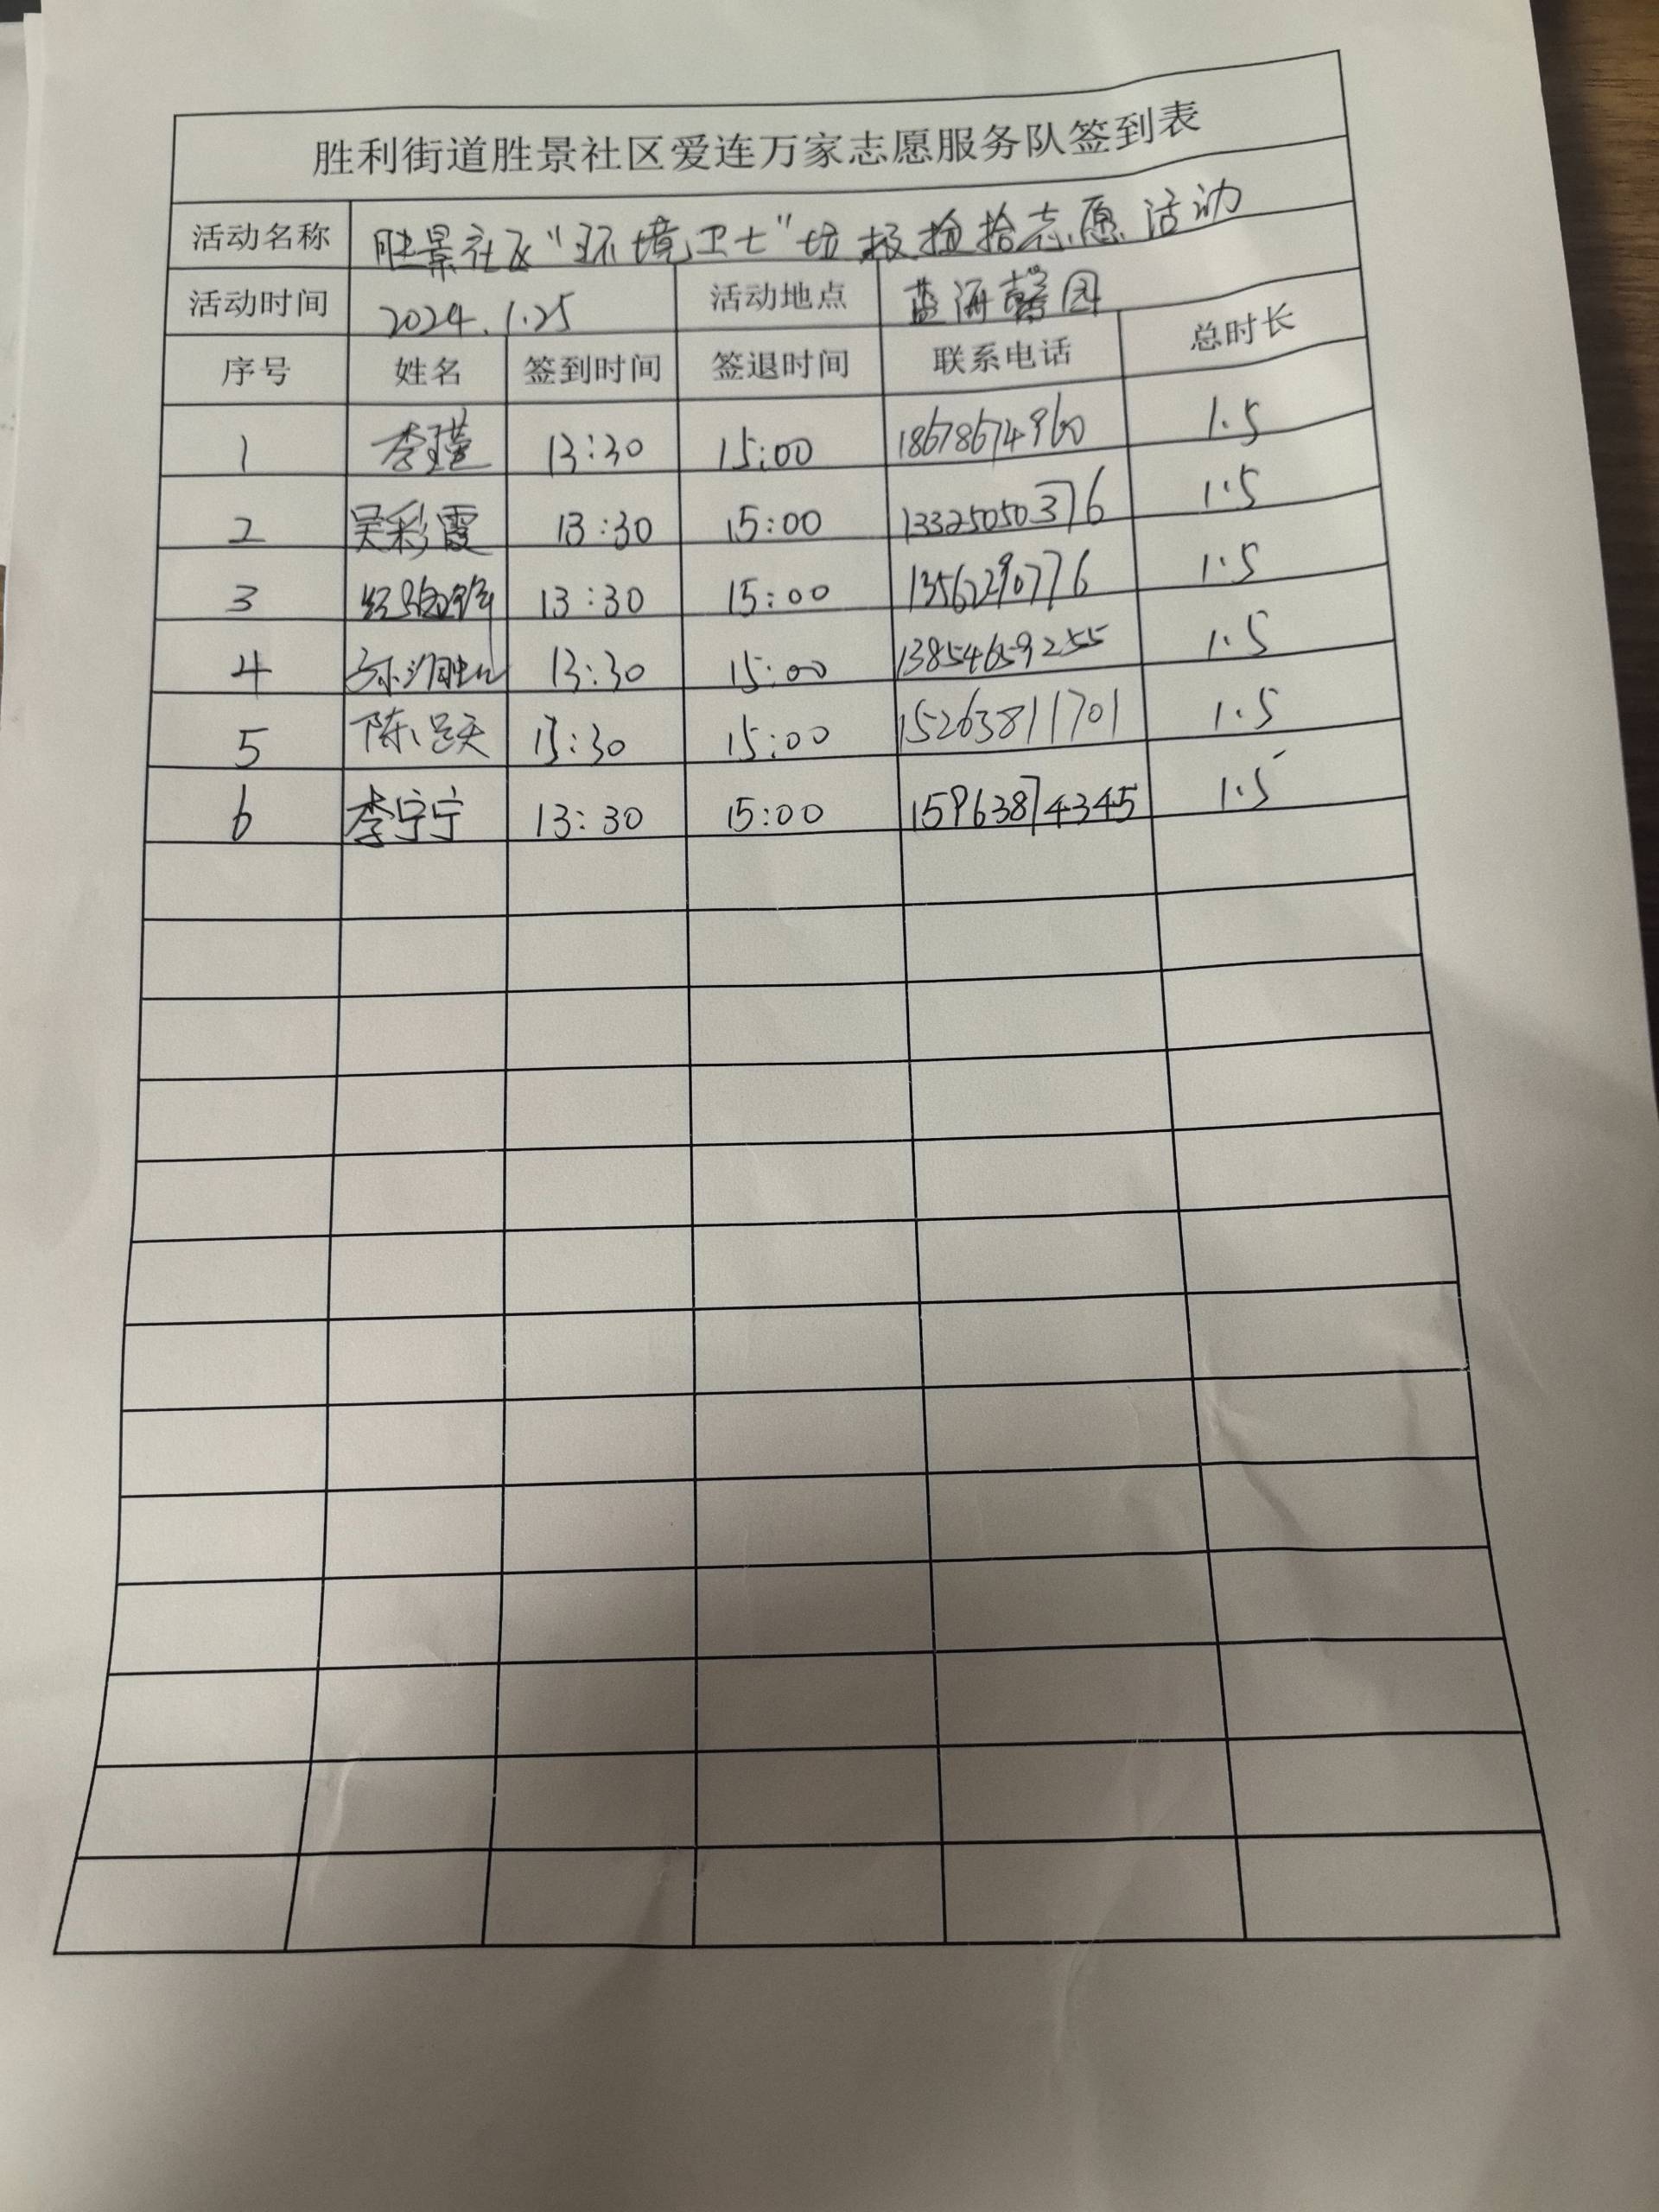 胜利街道胜景社区爱连万家志愿服务队签到表
活动名称 胜景社区“环境卫士”垃圾捡拾志愿活动
活动时间 2024.1.25 活动地点 蓝海馨园
序号 姓名 签到时间 签退时间 联系电话 总时长
1 李瑾 13:30 15:00 18678674960 1.5
2 吴彩霞 13:30 15:00 13325050376 1.5
3 13:30 15:00 13562290776 1.5
4 13:30 15:00 13854659255 1.5
5 13:30 15:00 15263811701 1.5
6 李宁宁 13:30 15:00 15963874345 1.5